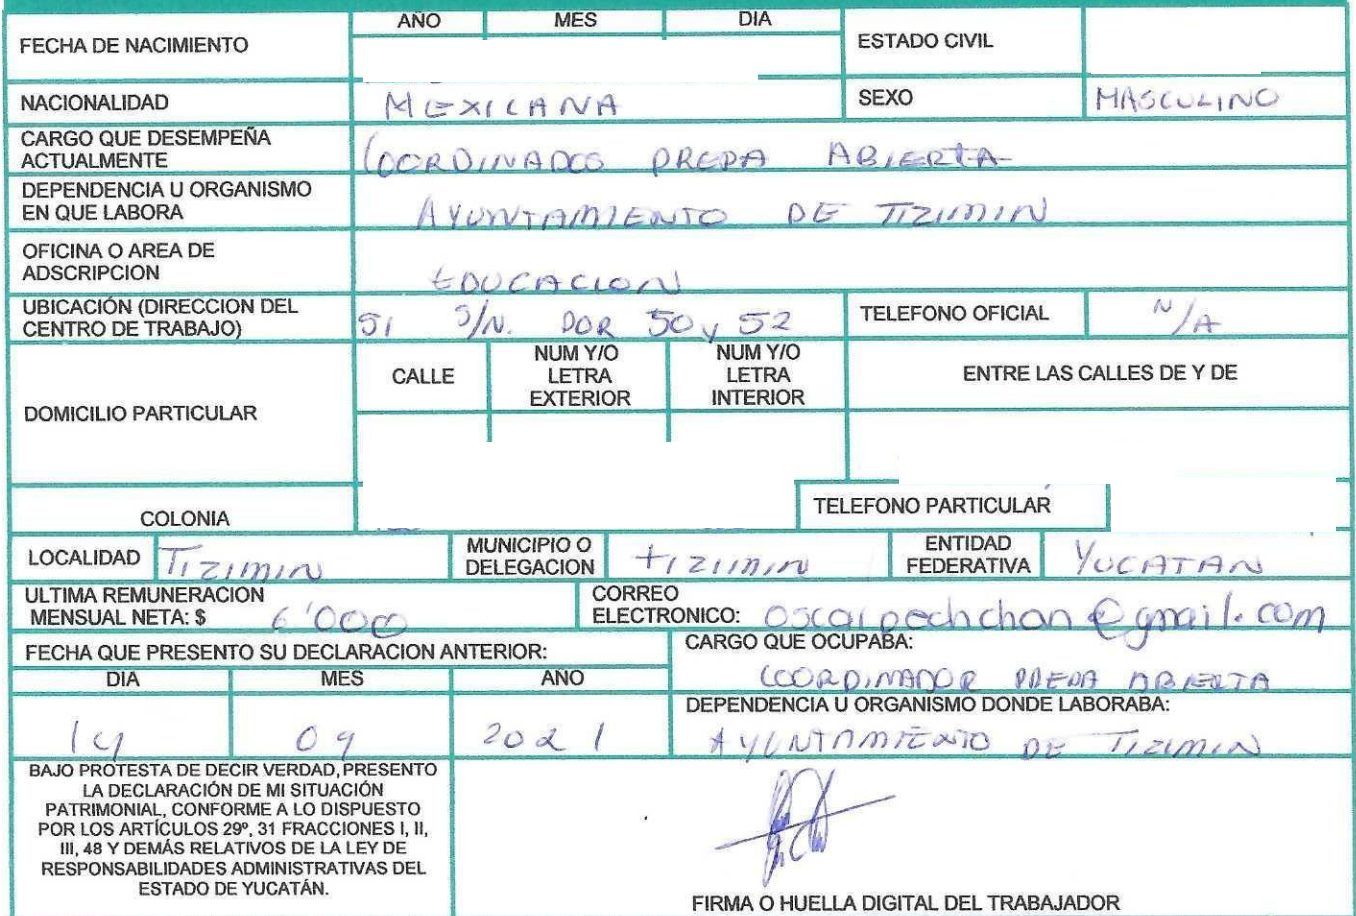 AÑO MES DIA
FECHA DE NACIMIENTO ESTADO CIVIL
NACIONALIDAD MEXICANA SEXO MASCULINO
CARGO QUE DESEMPEÑA
ACTUALMENTE COORDINADOR PREPA ABIERTA
DEPENDENCIA U ORGANISMO
EN QUE LABORA AYUNTAMIENTO DE TIZIMIN
OFICINA O AREA DE
ADSCRIPCION EDUCACION
UBICACIÓN (DIRECCION DEL
CENTRO DE TRABAJO) 51 S/N. POR 50 y 52 TELEFONO OFICIAL N/A
DOMICILIO PARTICULAR
CALLE
NUM Y/O
LETRA
EXTERIOR
NUM Y/O
LETRA
INTERIOR
ENTRE LAS CALLES DE Y DE
COLONIA TELEFONO PARTICULAR
LOCALIDAD TIZIMIN MUNICIPIO O
DELEGACION TIZIMIN ENTIDAD
FEDERATIVA YUCATAN
ULTIMA REMUNERACION
MENSUAL NETA: $ 6'000
CORREO
ELECTRONICO: oscarpechchan@gmail.com
FECHA QUE PRESENTO SU DECLARACION ANTERIOR:
DIA MES AÑO
14 09 2021
CARGO QUE OCUPABA:
COORDINADOR PREPA ABIERTA
DEPENDENCIA U ORGANISMO DONDE LABORABA:
AYUNTAMIENTO DE TIZIMIN
BAJO PROTESTA DE DECIR VERDAD, PRESENTO
LA DECLARACIÓN DE MI SITUACIÓN
PATRIMONIAL, CONFORME A LO DISPUESTO
POR LOS ARTÍCULOS 29º, 31 FRACCIONES I, II,
III, 48 Y DEMÁS RELATIVOS DE LA LEY DE
RESPONSABILIDADES ADMINISTRATIVAS DEL
ESTADO DE YUCATÁN.
FIRMA O HUELLA DIGITAL DEL TRABAJADOR